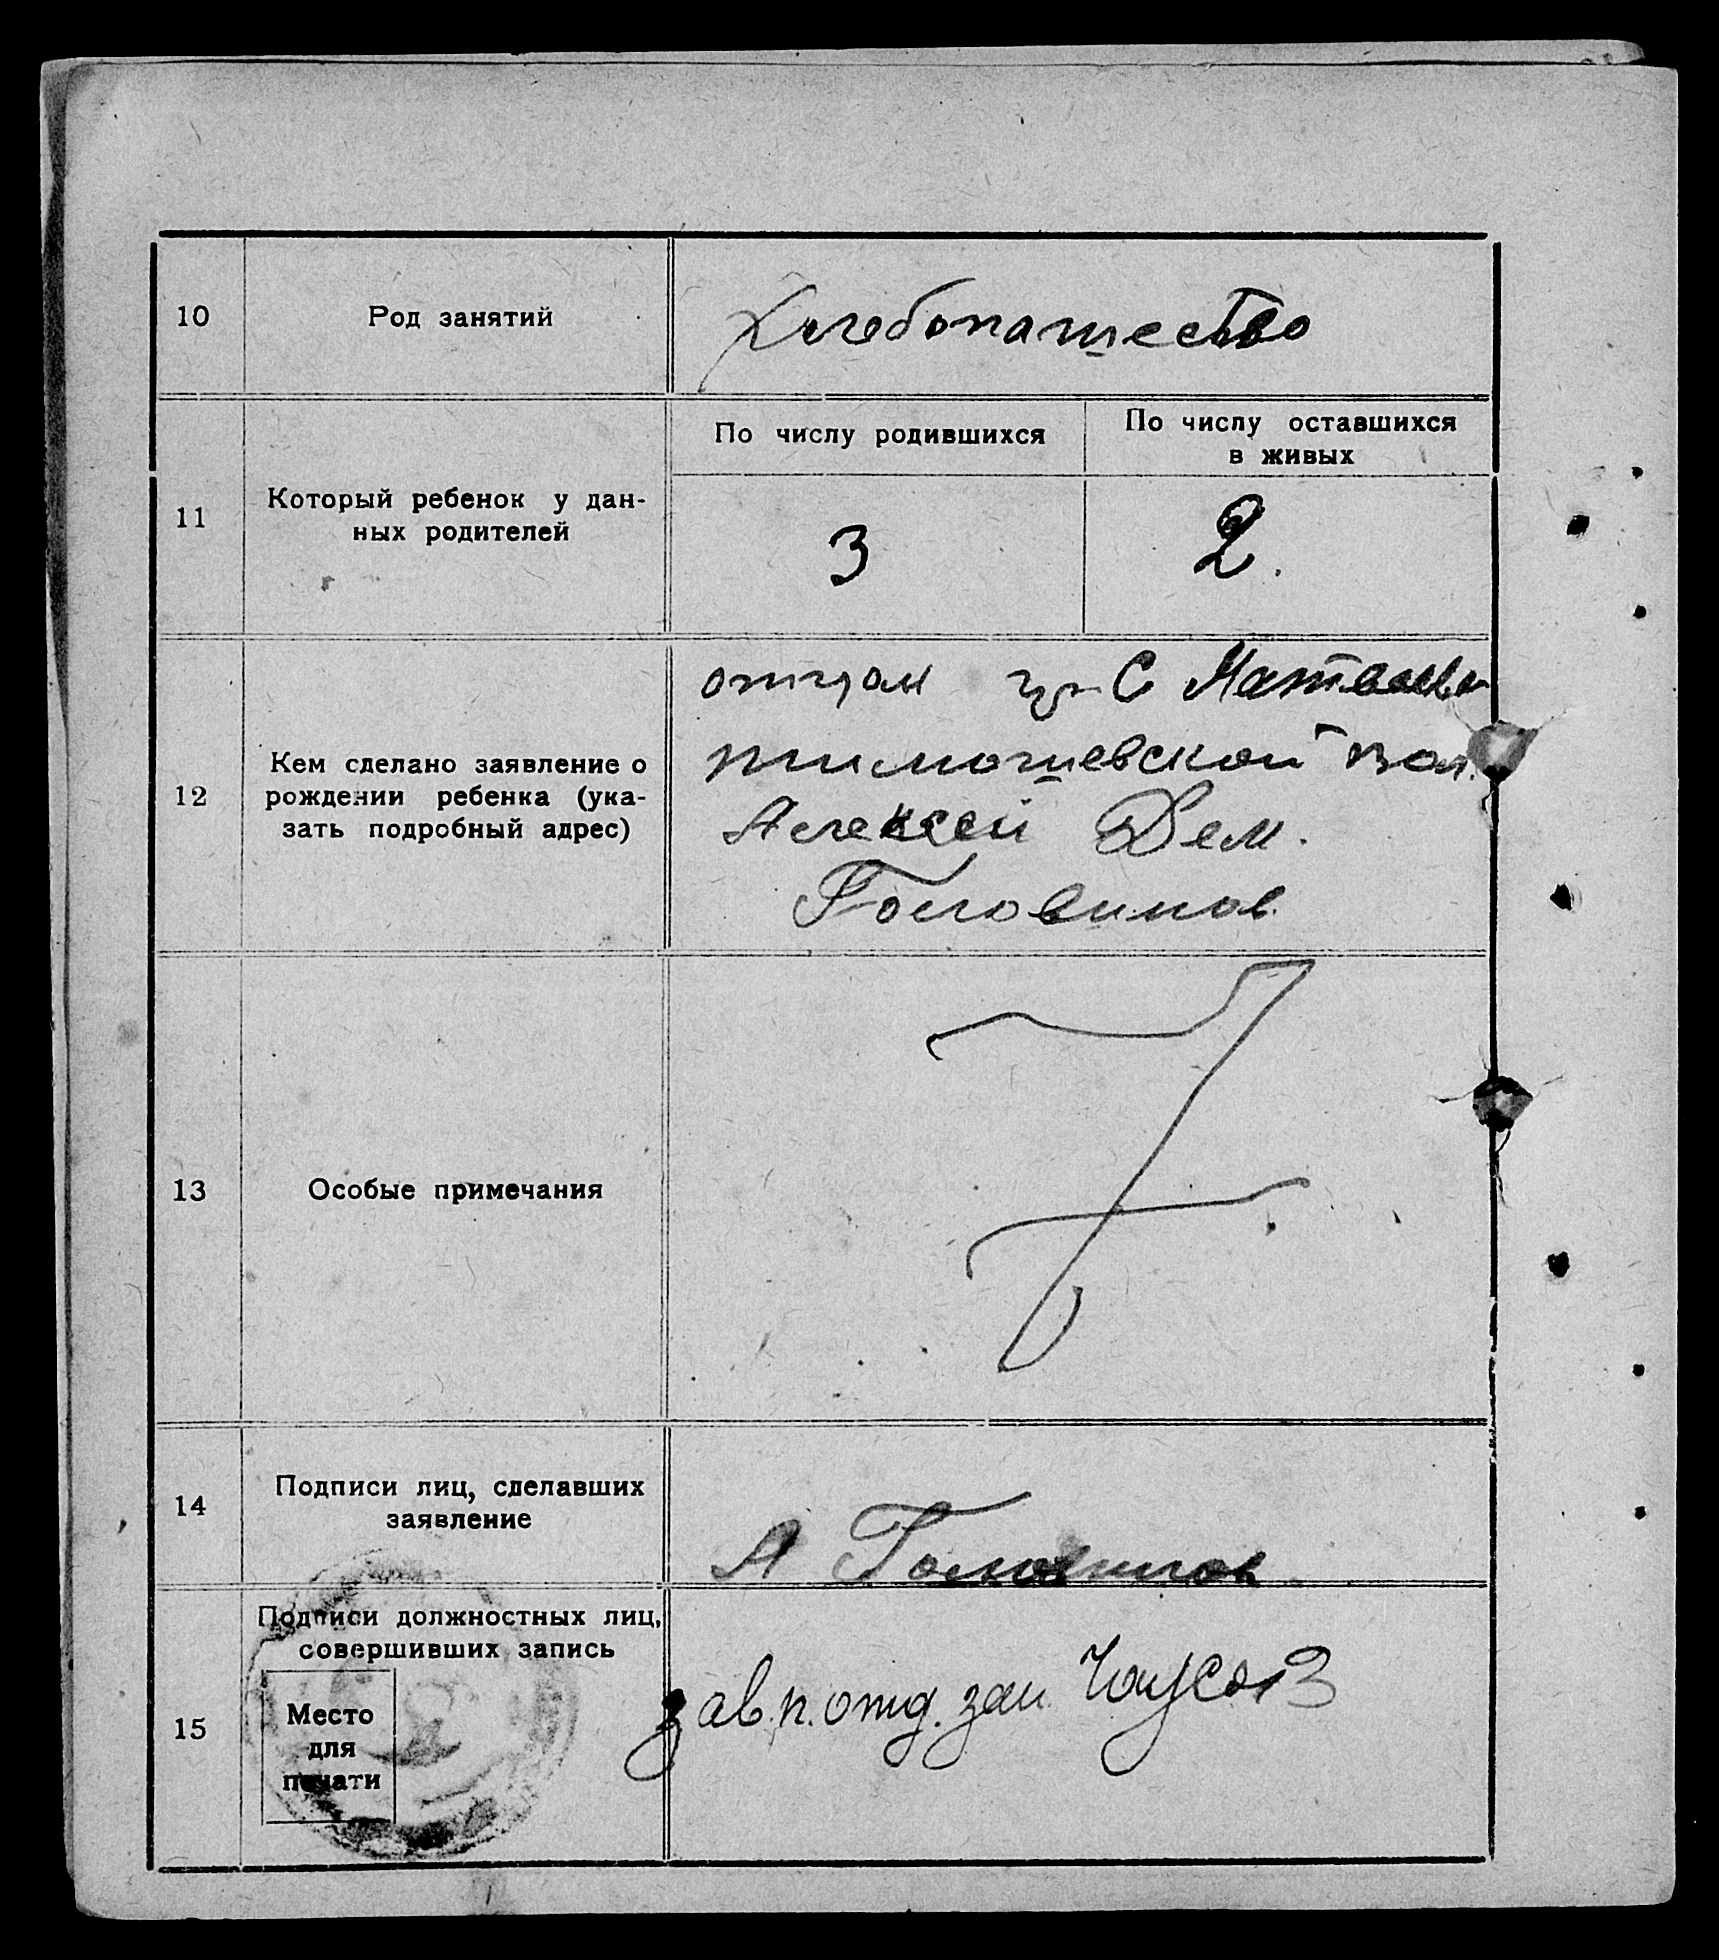 10
Род занятий
Хлебопашество
11
Который ребенок у дан-
ных родителей
По числу родившихся
По числу оставшихся
в живых
3
2.
12
Кем сделано заявление о
рождении ребенка (ука-
зать подробный адрес)
отцом гр С
тимошевской вол.
Алексей Дем.
Головинов
13
Особые примечания
14
Подписи лиц, сделавших
заявление
А Головинов
15
Подписи должностных лиц,
совершивших запись
Место
для
печати
зав. п. отд. Чаусов